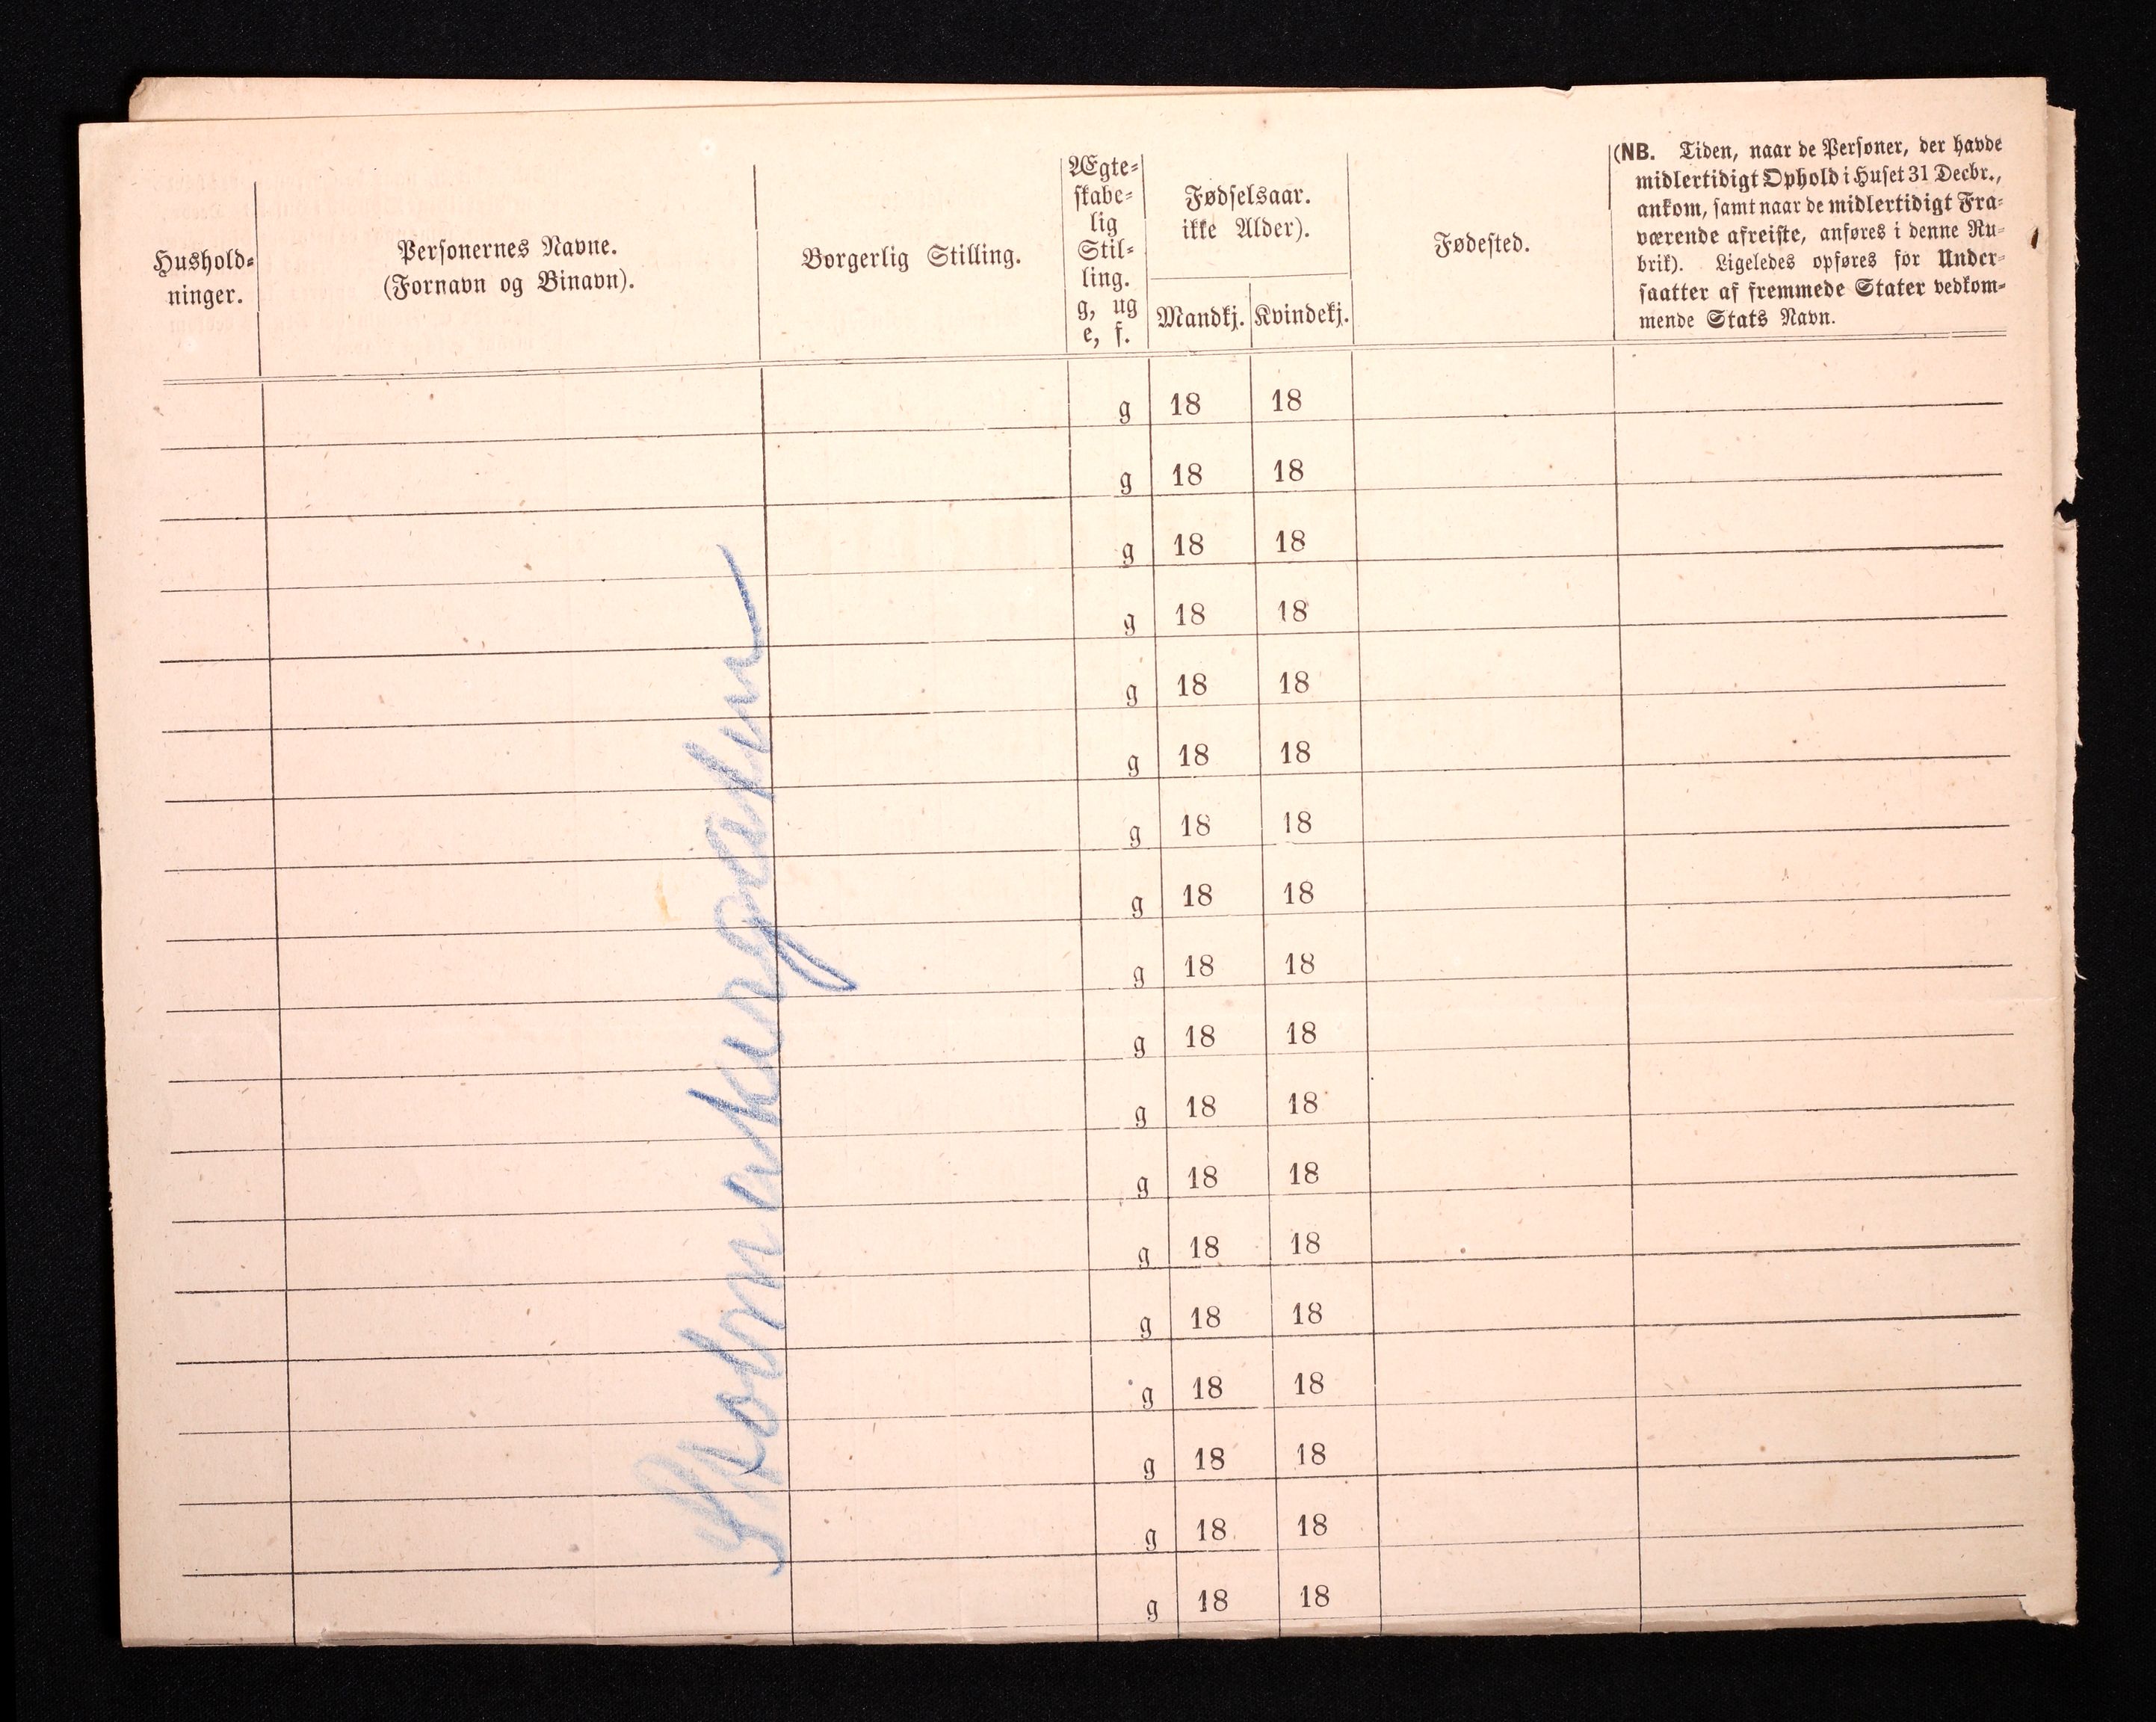 Hushold-
ninger.
Personernes Navne.
(Fornavn og Binavn).
Borgerlig Stilling.
Ægte-
skabe-
lig
Stil-
ling.
g, ug
e, f.
Fødselsaar.
ikke Alder).
Mandkj. Kvindekj.
Fødested.
(NB. Tiden, naar de Personer, der havde
midlertidigt Ophold i Huset 31 Decbr.,
ankom, samt naar de midlertidigt Fra-
værende afreiste, anføres i denne Ru-
brik). Ligeledes opføres for Under-
saatter af fremmede Stater vedkom-
mende Stats Navn.
g 18 18
g 18 18
g 18 18
g 18 18
g 18 18
g 18 18
g 18 18
g 18 18
g 18 18
g 18 18
g 18 18
g 18 18
g 18 18
g 18 18
g 18 18
g 18 18
g 18 18
g 18 18